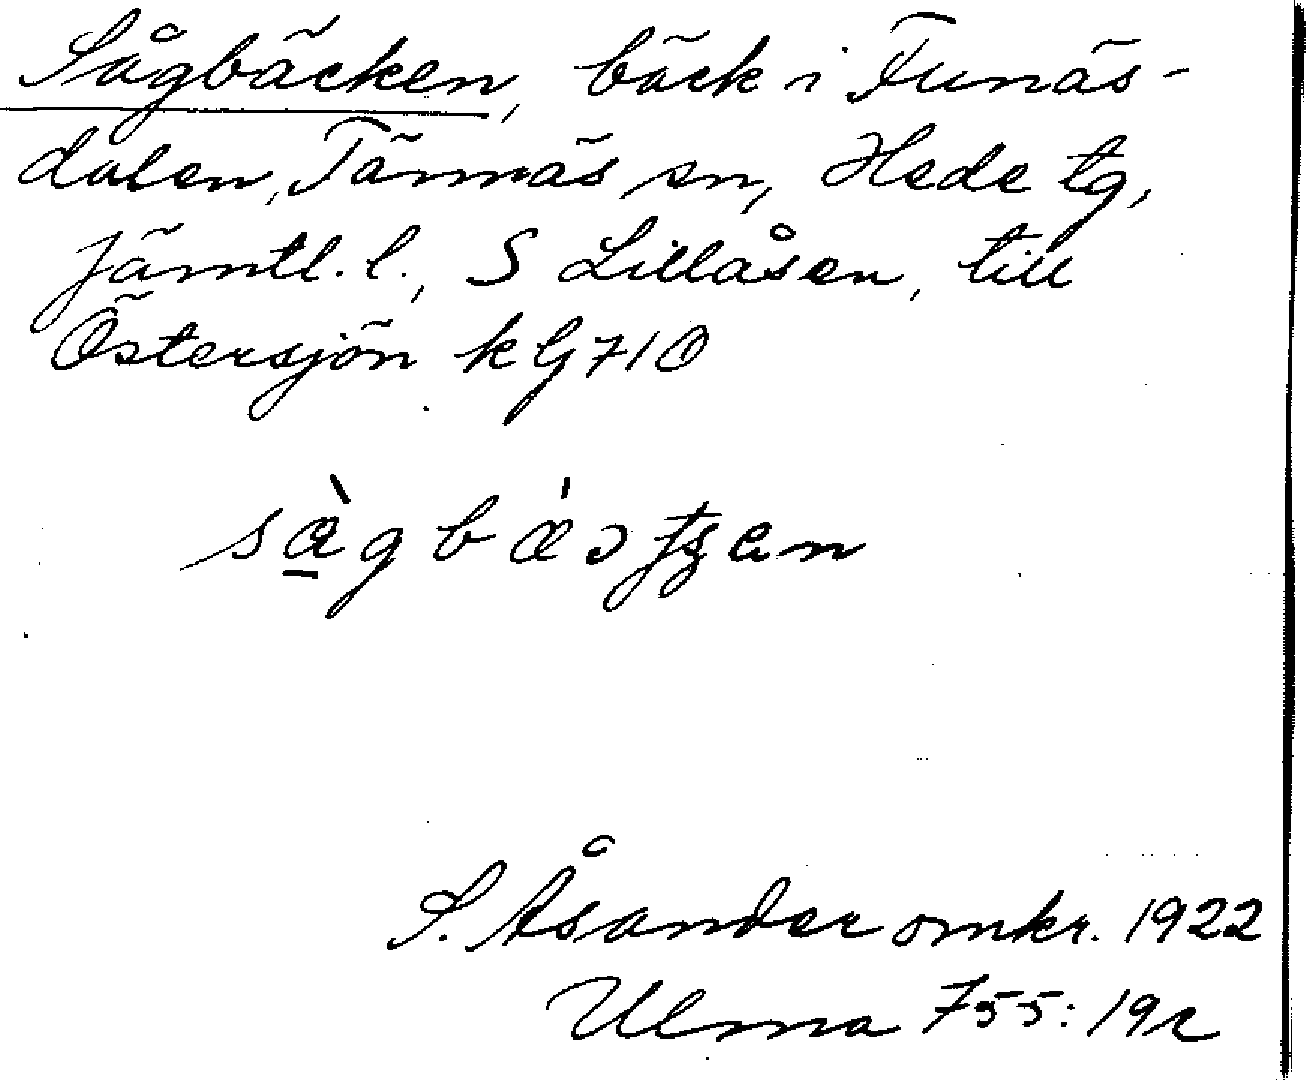 Sågbäcken, bäck i Funäs-
dalen, Tännäs sn, Hede tg,
Jämtl. l., S Lillåsen, till
Östersjön k G 710
S. Åsander omkr. 1922
Ulma 755: 19r